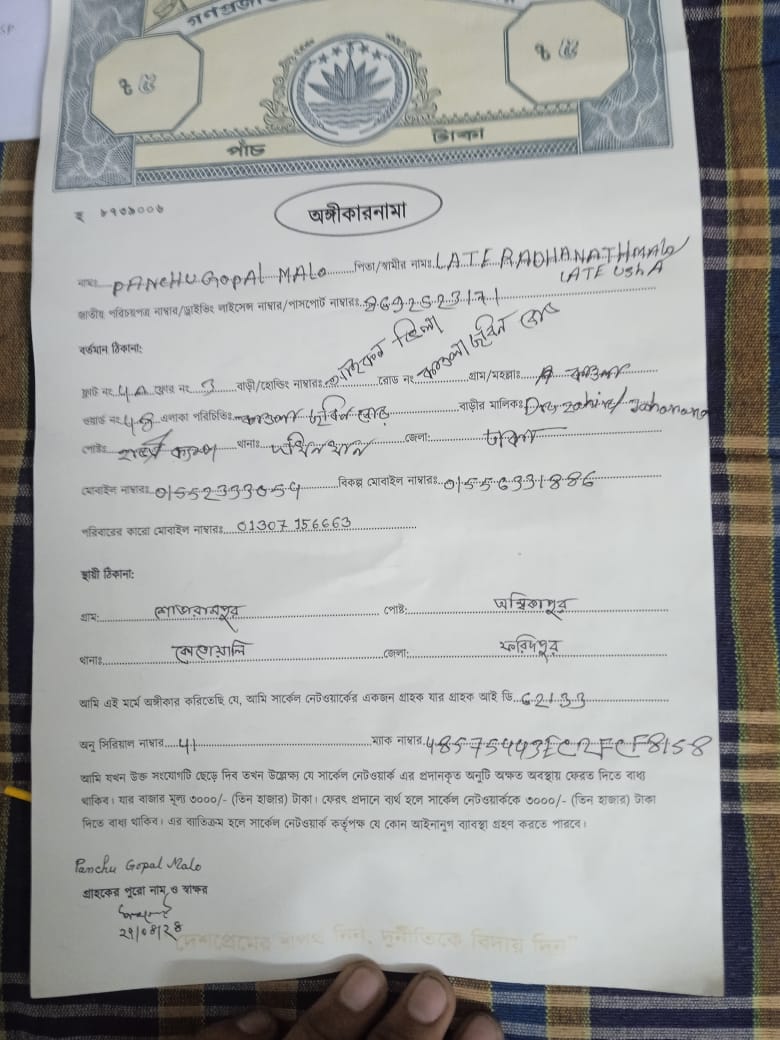 গণপ্রজা
৳ ৫ ৳ ৫
পাঁচ টাকা
৮৭৩৯০০৬
অঙ্গীকারনামা
নামঃ PANCHU GOPAL MALO পিতা/স্বামীর নামঃ LATE RADHANATH MALO
LATE USHA
জাতীয় পরিচয়পত্র নাম্বার/ড্রাইভিং লাইসেন্স নাম্বার/পাসপোর্ট নাম্বারঃ
বর্তমান ঠিকানা:
ফ্ল্যাট নং 4A ফ্লোর নং 3 বাড়ী/হোল্ডিং নাম্বারঃ রোড নং গ্রাম/মহল্লাঃ কাওলা
ওয়ার্ড নং 48 এলাকা পরিচিতিঃ বাড়ীর মালিকঃ
পোষ্টঃ থানাঃ দক্ষিনখান জেলা: ঢাকা
মোবাইল নাম্বারঃ বিকল্প মোবাইল নাম্বারঃ 01556331886
পরিবারের কারো মোবাইল নাম্বারঃ 01307 156663
স্থায়ী ঠিকানা:
গ্রাম: শোভারামপুর পোষ্ট: অম্বিকাপুর
থানাঃ কোতোয়ালি জেলা: ফরিদপুর
আমি এই মর্মে অঙ্গীকার করিতেছি যে, আমি সার্কেল নেটওয়ার্কের একজন গ্রাহক যার গ্রাহক আই ডি 62133
অনু সিরিয়াল নাম্বার 41 ম্যাক নাম্বার
আমি যখন উক্ত সংযোগটি ছেড়ে দিব তখন উল্লেক্ষ্য যে সার্কেল নেটওয়ার্ক এর প্রদানকৃত অনুটি অক্ষত অবস্থায় ফেরত দিতে বাধ্য
থাকিব। যার বাজার মূল্য ৩০০০/- (তিন হাজার) টাকা। ফেরৎ প্রদানে ব্যর্থ হলে সার্কেল নেটওয়ার্ককে ৩০০০/- (তিন হাজার) টাকা
দিতে বাধ্য থাকিব। এর ব্যতিক্রম হলে সার্কেল নেটওয়ার্ক কর্তৃপক্ষ যে কোন আইনানুগ ব্যাবস্থা গ্রহণ করতে পারবে।
Panchu Gopal Malo
গ্রাহকের পুরো নাম ও স্বাক্ষর
"দেশপ্রেমের শপথ নিন, দুর্নীতিকে বিদায় দিন"